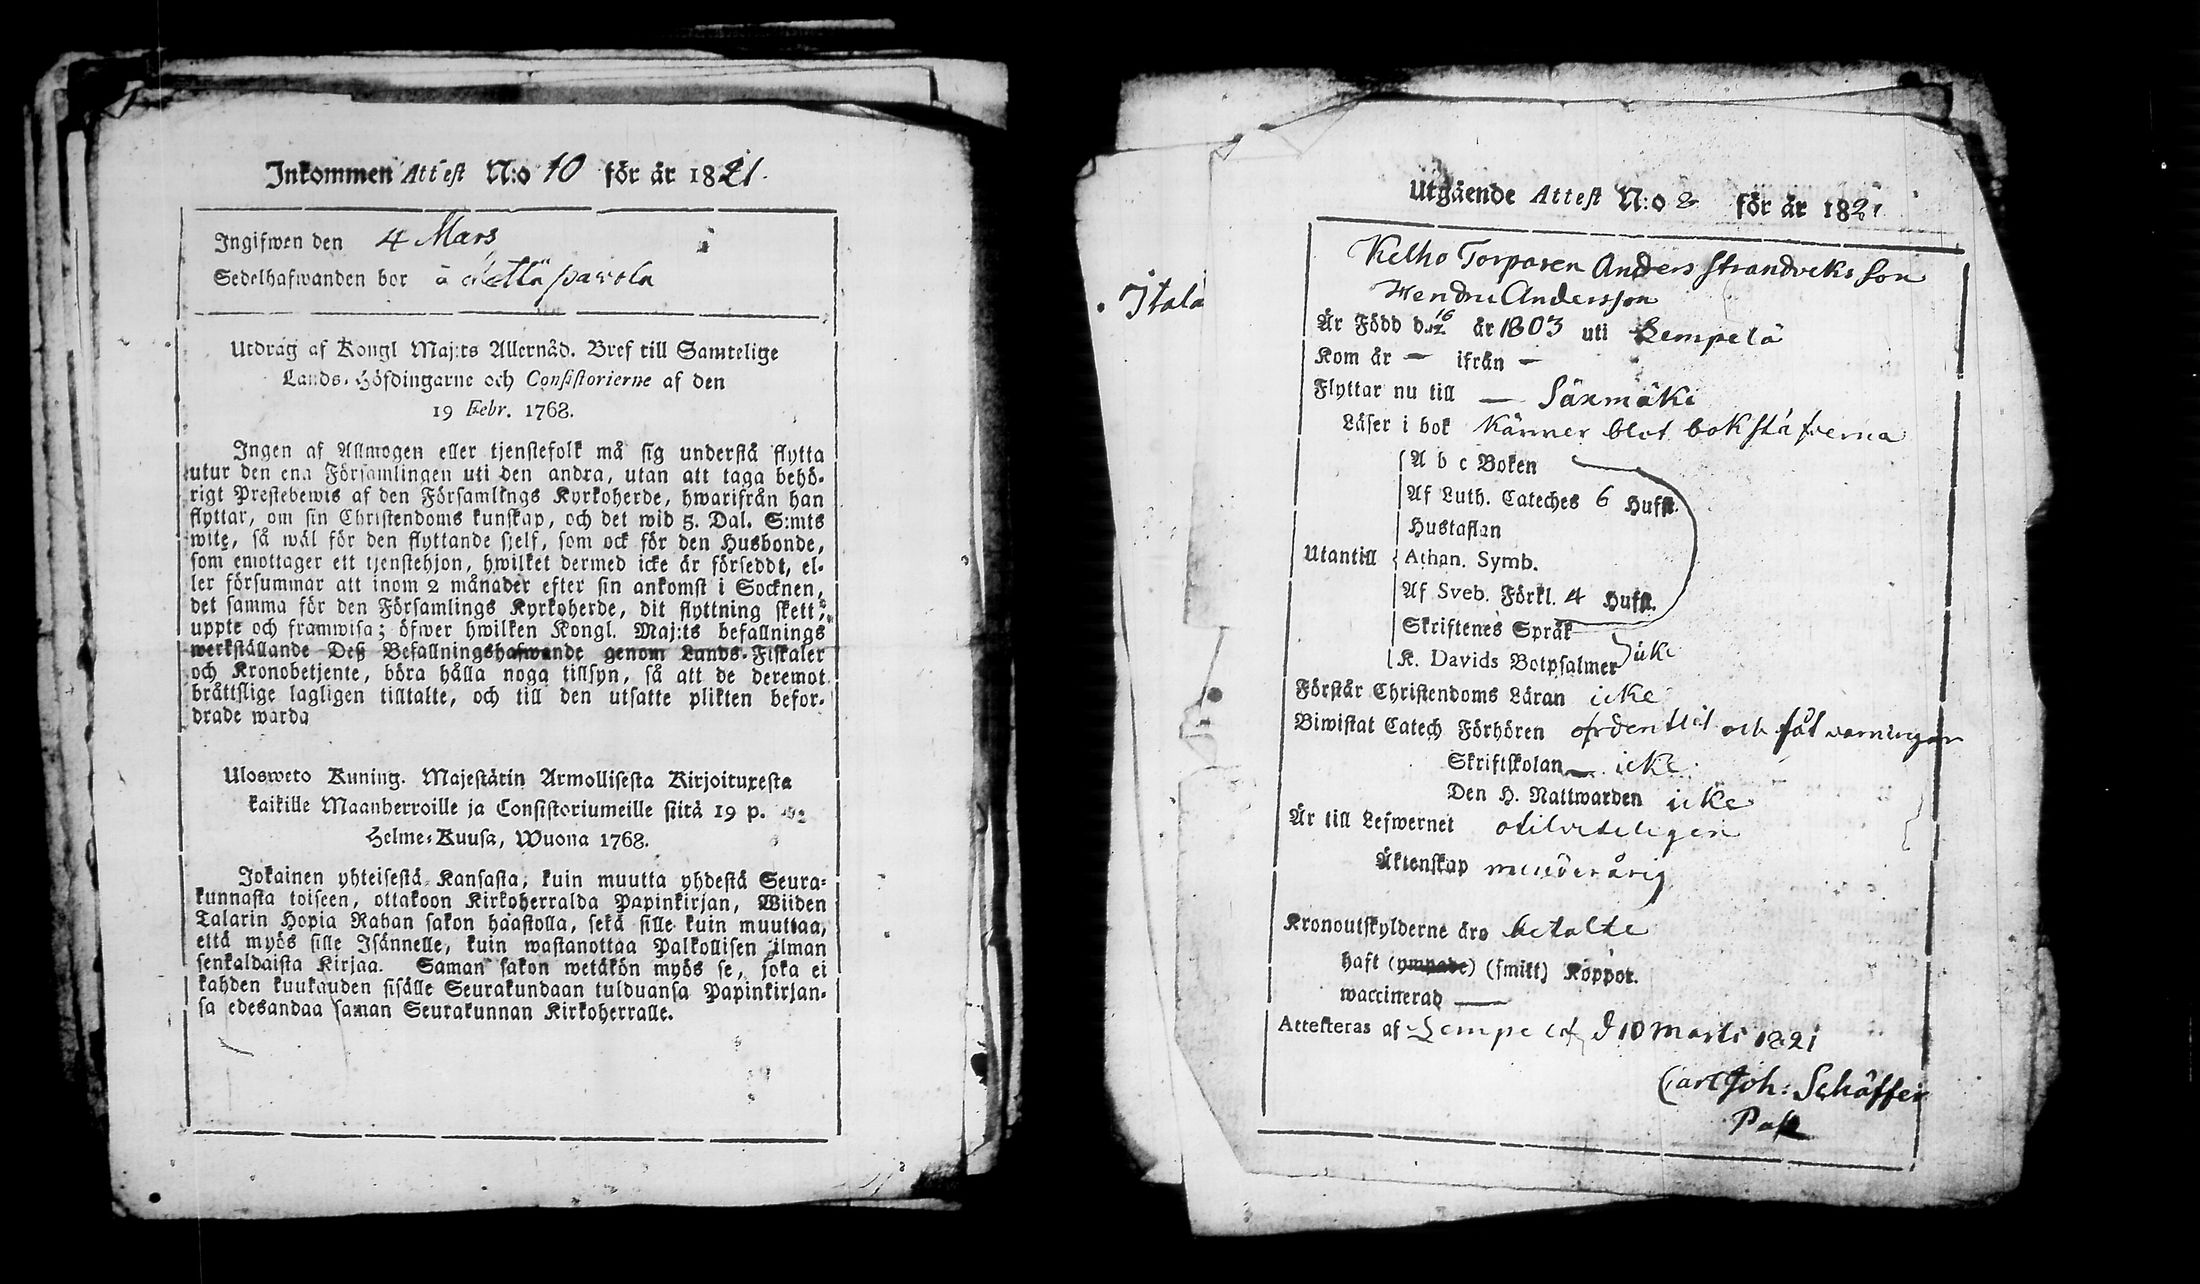 Inkommen Attest N:o 10 för år 1821.
Ingifwen den 4 Mars
Sedelhafwanden bor å
Utdrag af Kongl Maj:ts Allernåd. Bref till Samtelige
Lands-Höfdingarne och Consistorierne af den
19 Febr. 1768.
Ingen af Allmogen eller tjenstefolk må sig understå flytta
utur den ena Församlingen uti den andra, utan att taga behö-
rigt Prestebewis af den Församlings Kyrkoherde, hwarifrån han
flyttar, om sin Christendoms kunskap, och det wid 5. Dal. S:mts
wite, så wäl för den flyttande sjelf, som ock för den Husbonde,
som emottager ett tjenstehjon, hwilket dermed icke är förseddt, el-
ler försummar att inom 2 månader efter sin ankomst i Socknen,
det samma för den Församlings Kyrkoherde, dit flyttning skett,
uppte och framwisa; öfwer hwilken Kongl. Maj:ts befallnings
werkställande Deß Befallningshafwande genom Lands-Fiskaler
och Kronobetjente, böra hålla noga tillsyn, så att de deremot
bråttslige lagligen tilltalte, och till den utsatte plikten befor-
drade warda
Ulosweto Kuning. Majestätin Armollisesta Kirjoituxesta
kaikille Maanherroille ja Consistoriumeille siitä 19 p.
Helme-Kuusa, Wuona 1768.
Jokainen yhteisestä Kansasta, kuin muutta yhdestä Seura-
kunnasta toiseen, ottakoon Kirkoherralda Papinkirjan, Wiiden
Talarin Hopia Rahan sakon haastolla, sekä sille kuin muuttaa,
että myös sille Isännelle, kuin wastanottaa Palkollisen ilman
senkaldaista Kirjaa. Saman sakon wetäkön myös se, joka ei
kahden kuukauden sisälle Seurakundaan tulduansa Papinkirjan-
sa edesandaa saman Seurakunnan Kirkoherralle.
Itala
Utgående Attest N:o 8 för år 1821
Kelho Torparen Anders Strandviks Son
Hendric Andersson
Är Född d. 16 år 1803 uti Lempelä
Kom år — ifrån —
Flyttar nu till — Säxmäki
Läser i bok känner blot bokstäfverna
A b c Boken
Af Luth. Cateches 6 Hufst.
Hustaflan
Utantill Athan. Symb.
Af Sveb. Förkl. 4 Hufst.
Skriftenes Språk
K. Davids Botpsalmer icke
Förstår Christendoms Läran icke
Biwistat Catech Förhören ordentlit och fåt varningar
Skriftskolan — icke
Den H. Nattwarden icke
Är till Lefwernet
Äktenskap minderårig
Kronoutskylderne äro betalte
haft (ympade) (smitt) Koppor.
waccinerad —
Attesteras af Lempelä d 10 Martii 1821
Carl Joh: Schäffer
Past